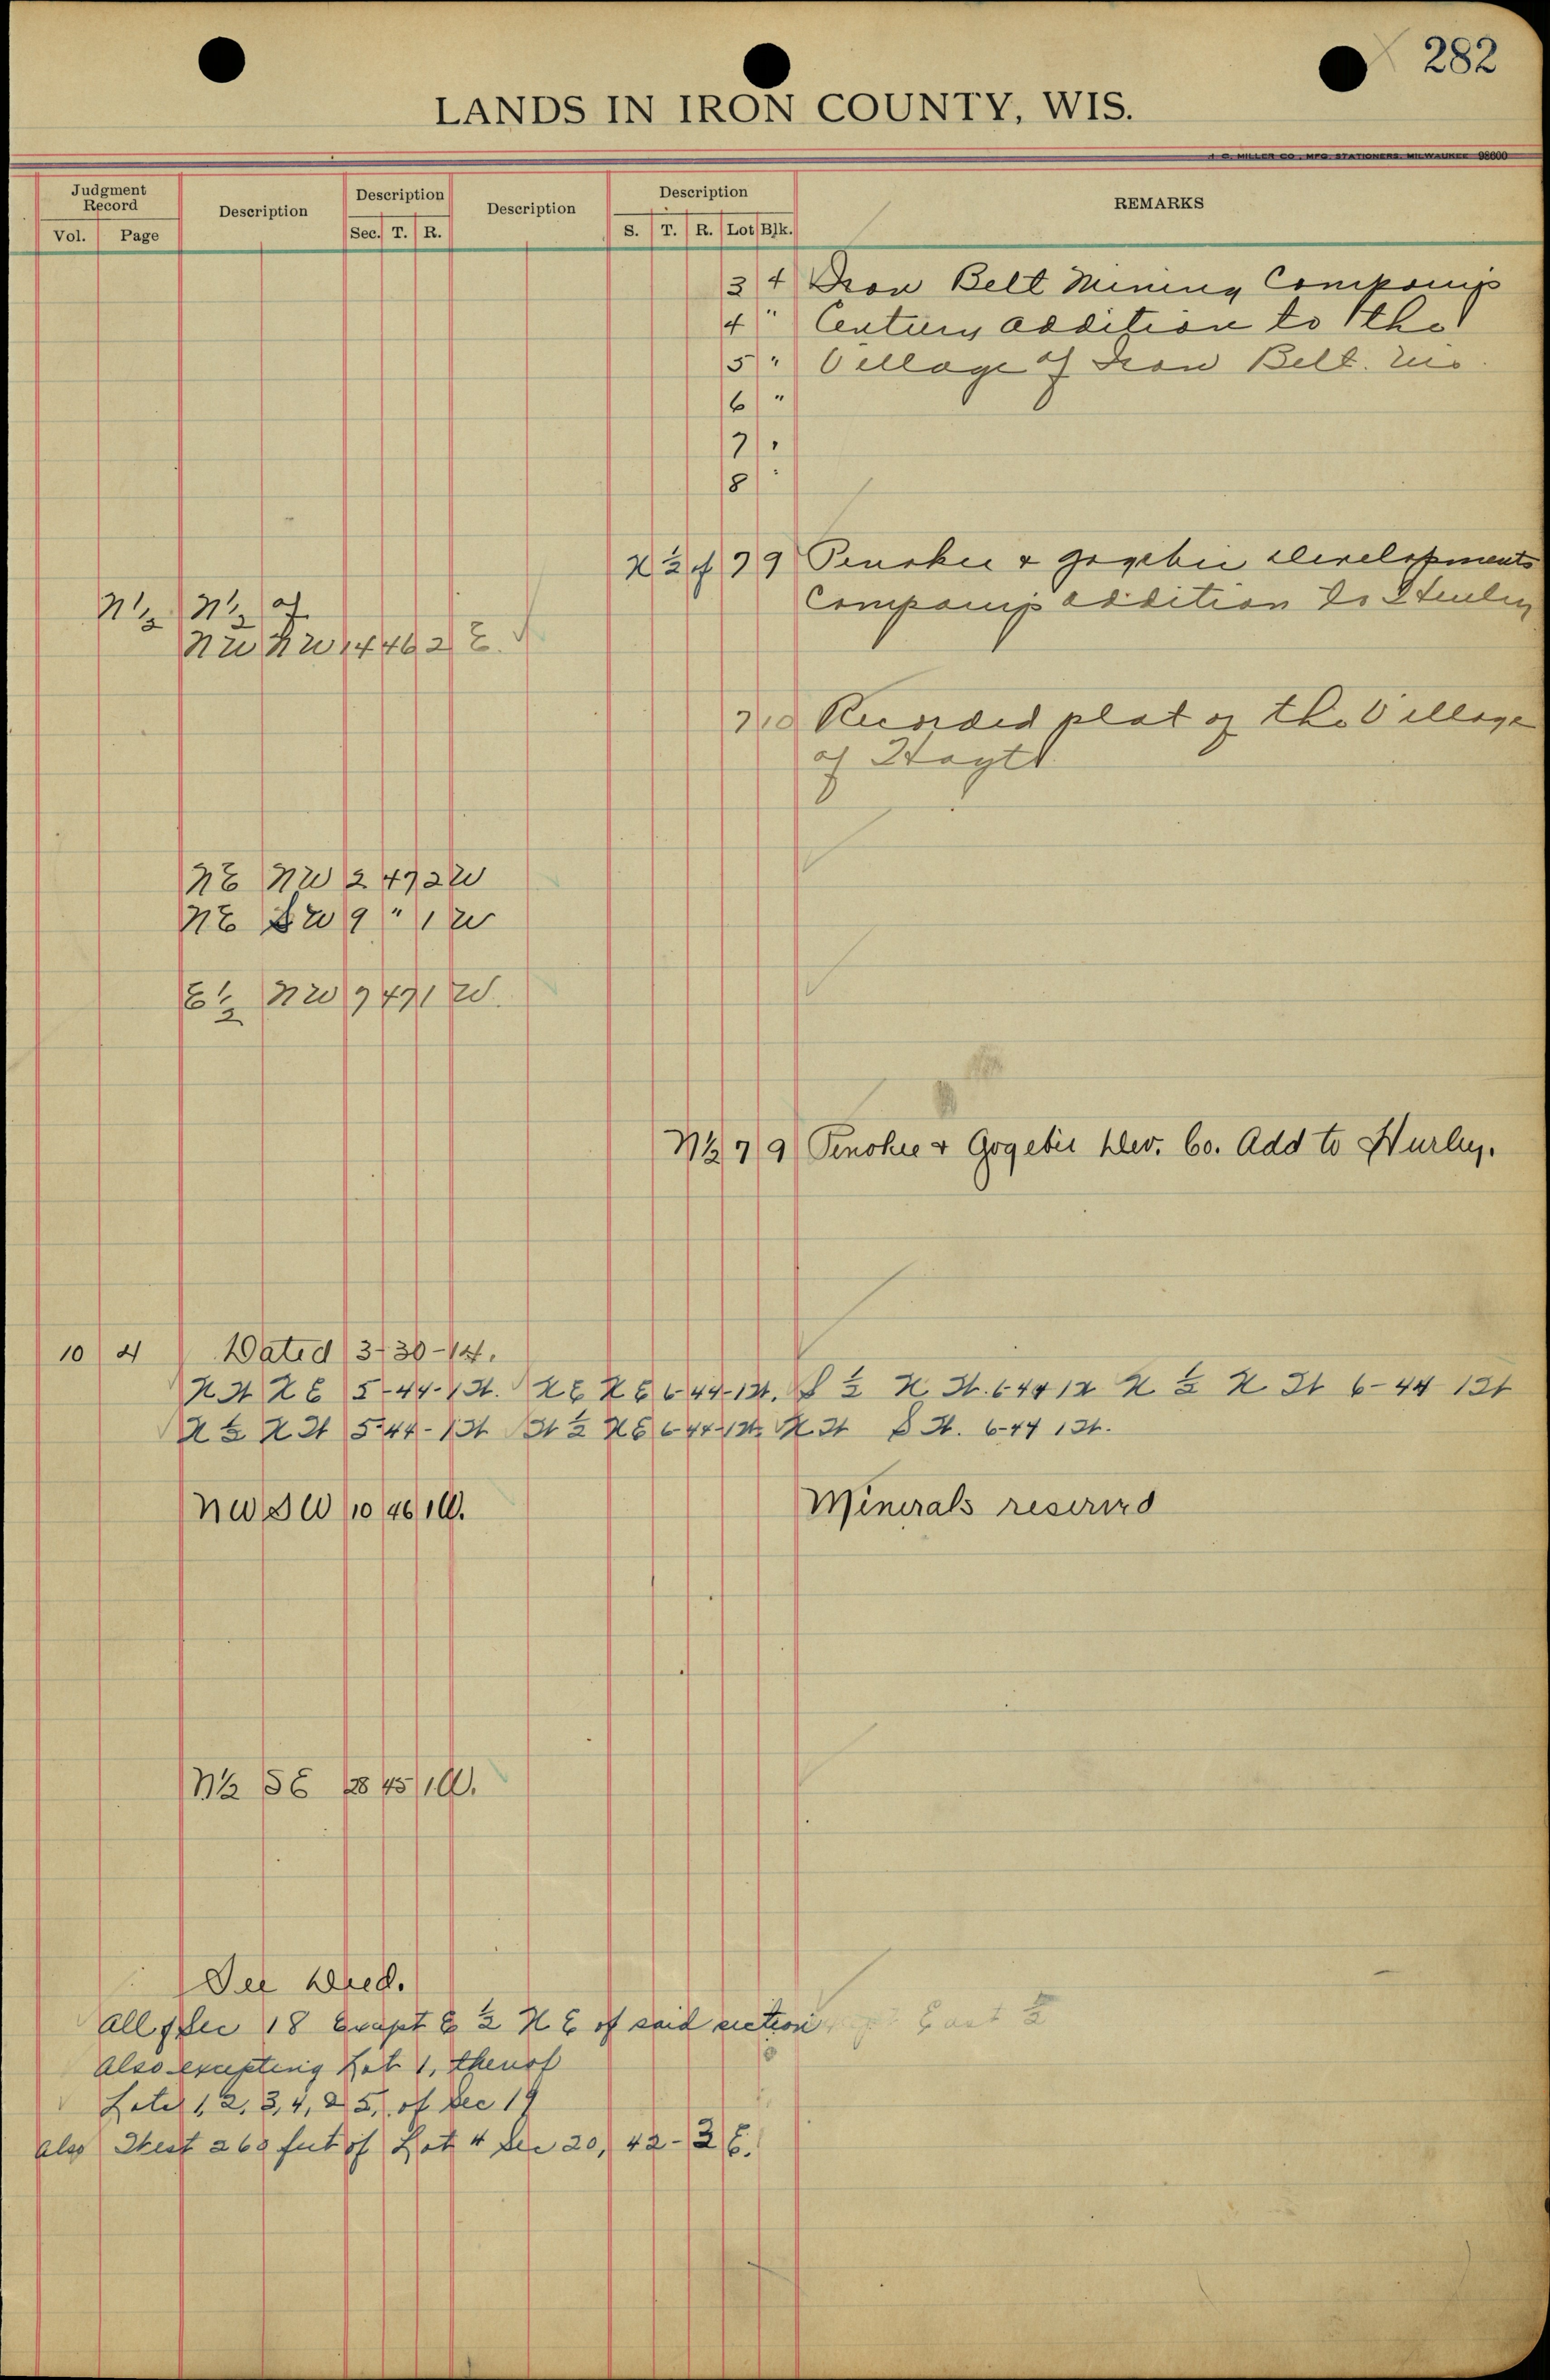 282
LANDS IN IRON COUNTY, WIS.
H. C. MILLER CO., MFG. STATIONERS, MILWAUKEE 98600
Judgment Record
Vol. Page
Description
Description
Sec. T. R.
Description
Description
S. T. R. Lot Blk.
REMARKS
3 4 Iron Belt Mining Companys
4 " Century addition to the
5 " Village of Iron Belt. Wis.
6 "
7 "
8 "
N ½ of 7 9 Penokee & Gogebic Developments
Companys addition to Hurley
N ½ N ½ of
NW NW 14 46 2 E.
7 10 Recorded plat of the Village
of Hoyt
NE NW 2 47 2 W
NE SW 9 " 1 W
E ½ NW 9 47 1 W.
N½ 7 9 Penokee & Gogebic Dev. Co. Add to Hurley.
10 4 Dated 3-30-14.
N W N E 5-44-1 W. N E N E 6-44-1 W. S ½ N W. 6 44 1 W N ½ N W 6-44 1 W
N ½ N W 5-44-1 W W ½ N E 6-44-1 W. N W S W. 6-44 1 W.
NW SW 10 46 1 W. Minerals reserved
N½ SE 28 45 1 W.
See Deed.
All of Sec 18 Except E ½ N E of said section East ½
Also excepting Lot 1, thereof
Lots 1, 2, 3, 4, & 5, of Sec 19
Also West 260 feet of Lot 4 Sec 20, 42-3 E.